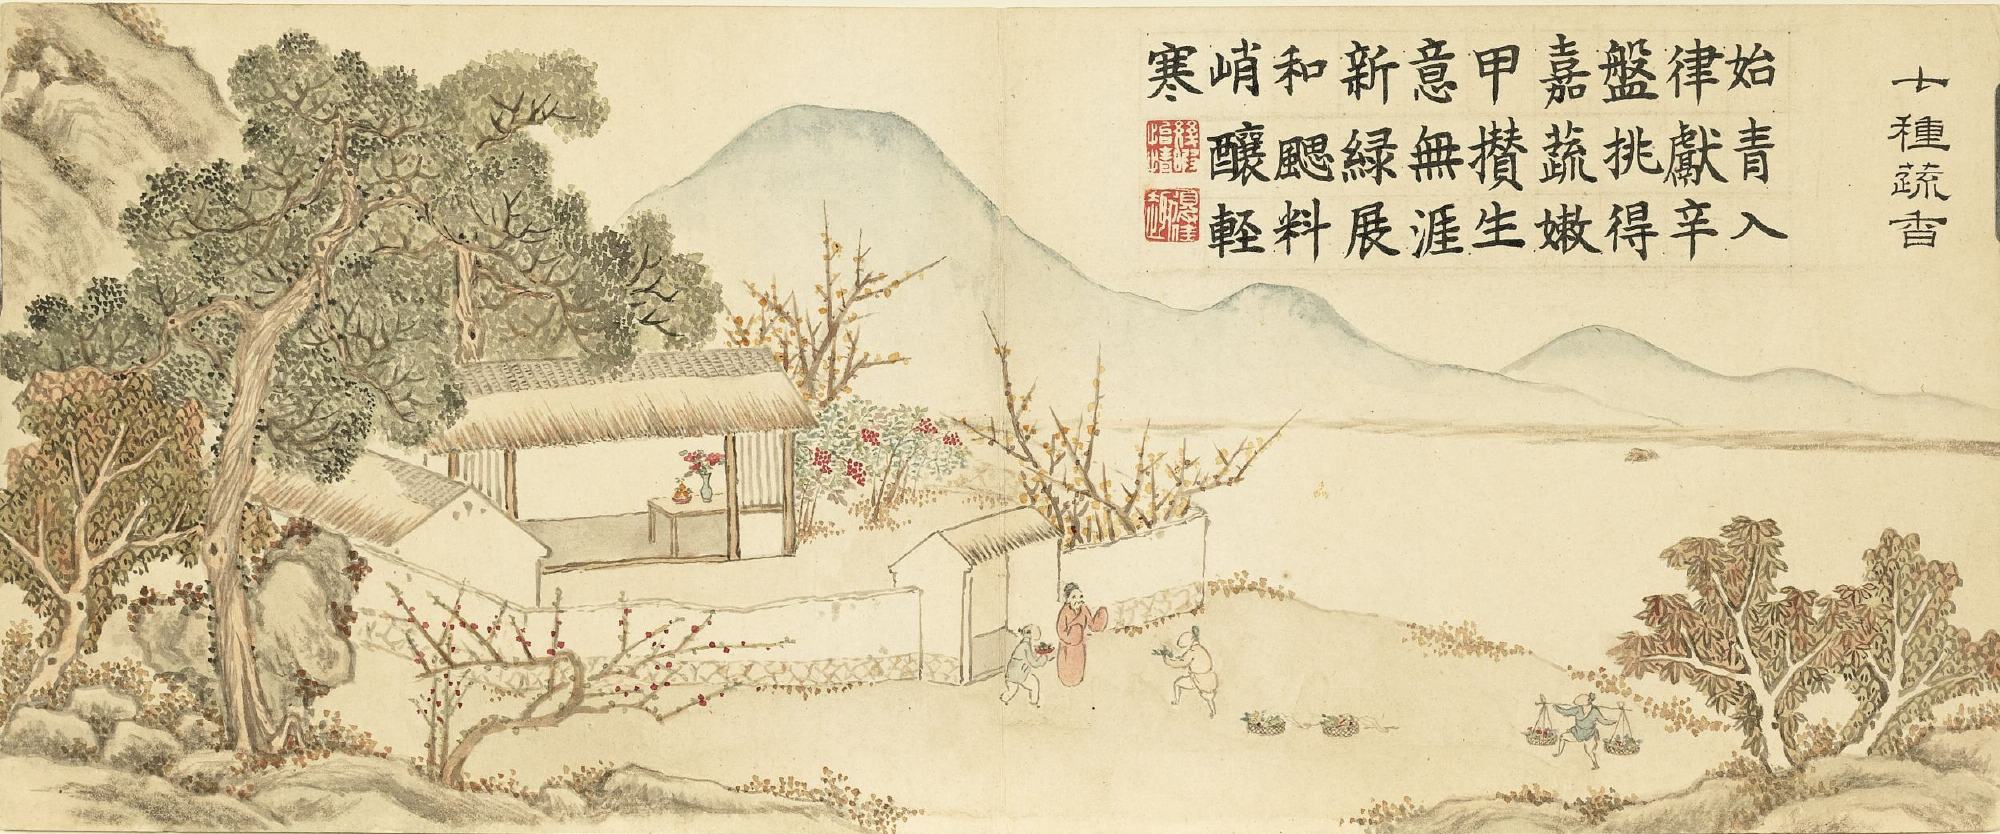 七種蔬香
始青入
律獻辛
盤挑得
嘉蔬嫩
甲攅生
意無涯
新緑展
和颸料
峭釀軽
寒